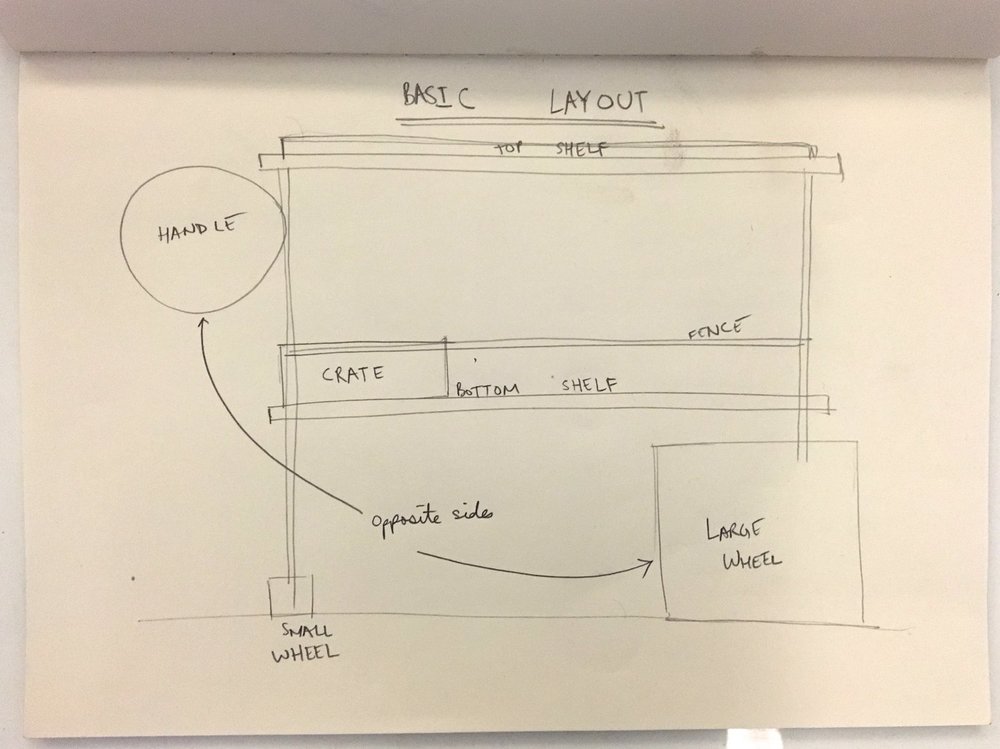 BASIC LAYOUT
TOP SHELF
HANDLE
FENCE
CRATE
BOTTOM SHELF
Opposite sides
LARGE
WHEEL
SMALL
WHEEL